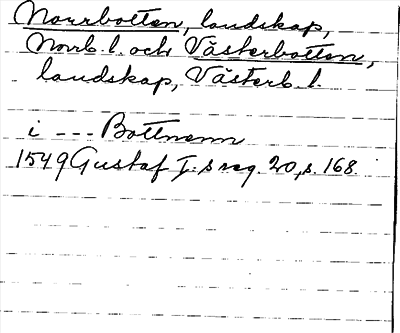 Norrbotten, landskap,
Norrb. l. och Västerbotten,
landskap, Västerb. l.
i --- Bottnenn
1549 Gustaf I:s reg. 20, s. 168.